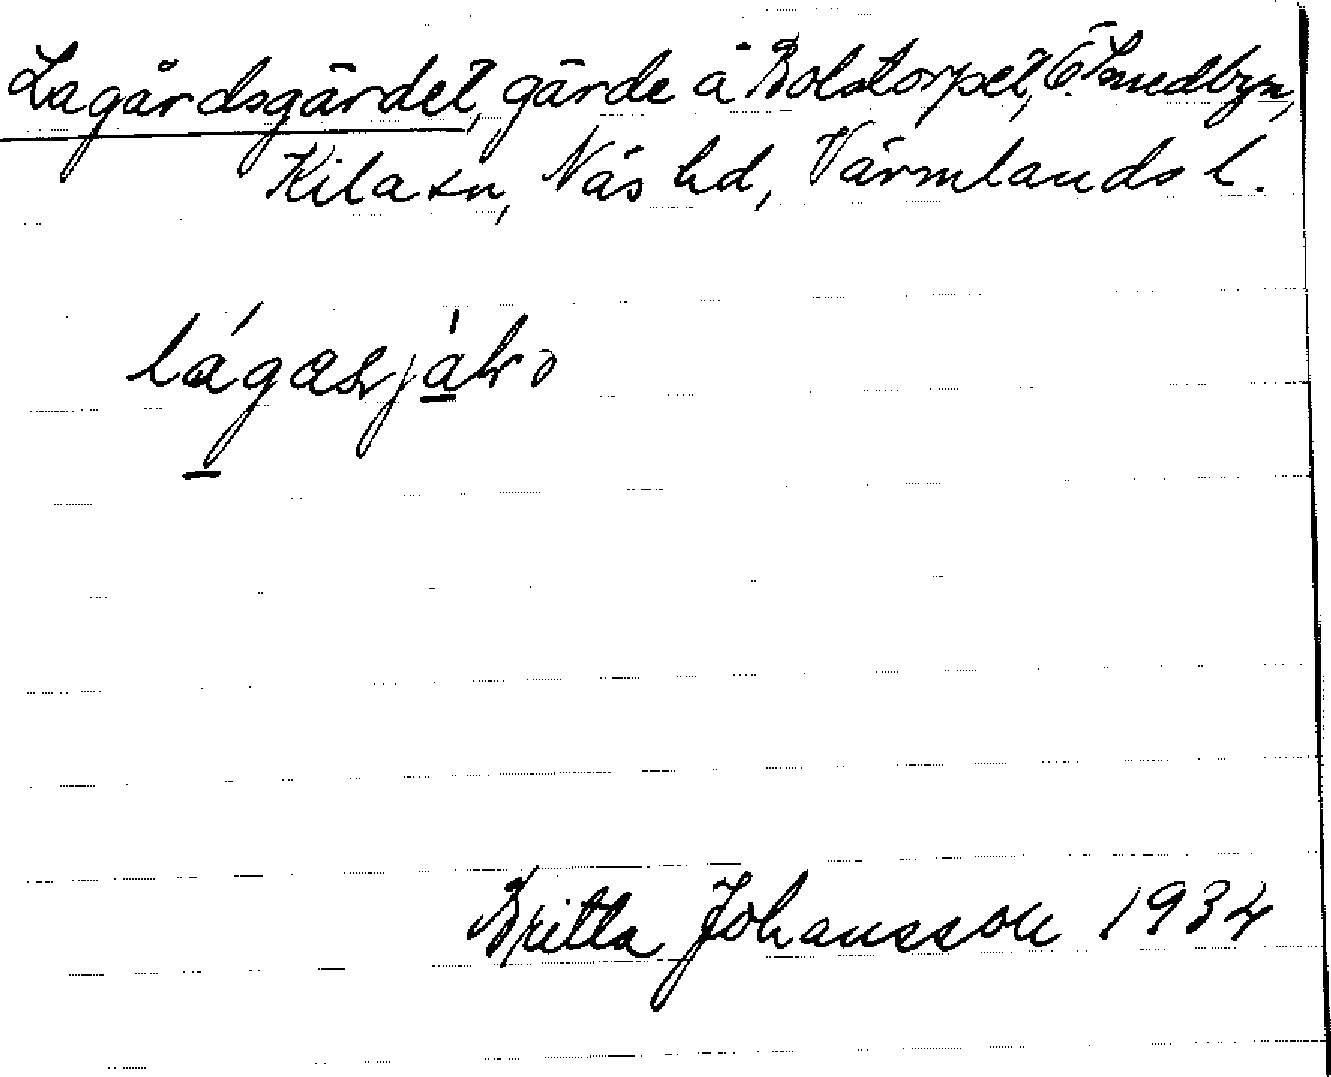 Lagårdsgärdet, gärde å Bolstorpet, Ö. Smedbyn,
Kila sn, Näs hd, Värmlands l.
Britta Johansson 1934